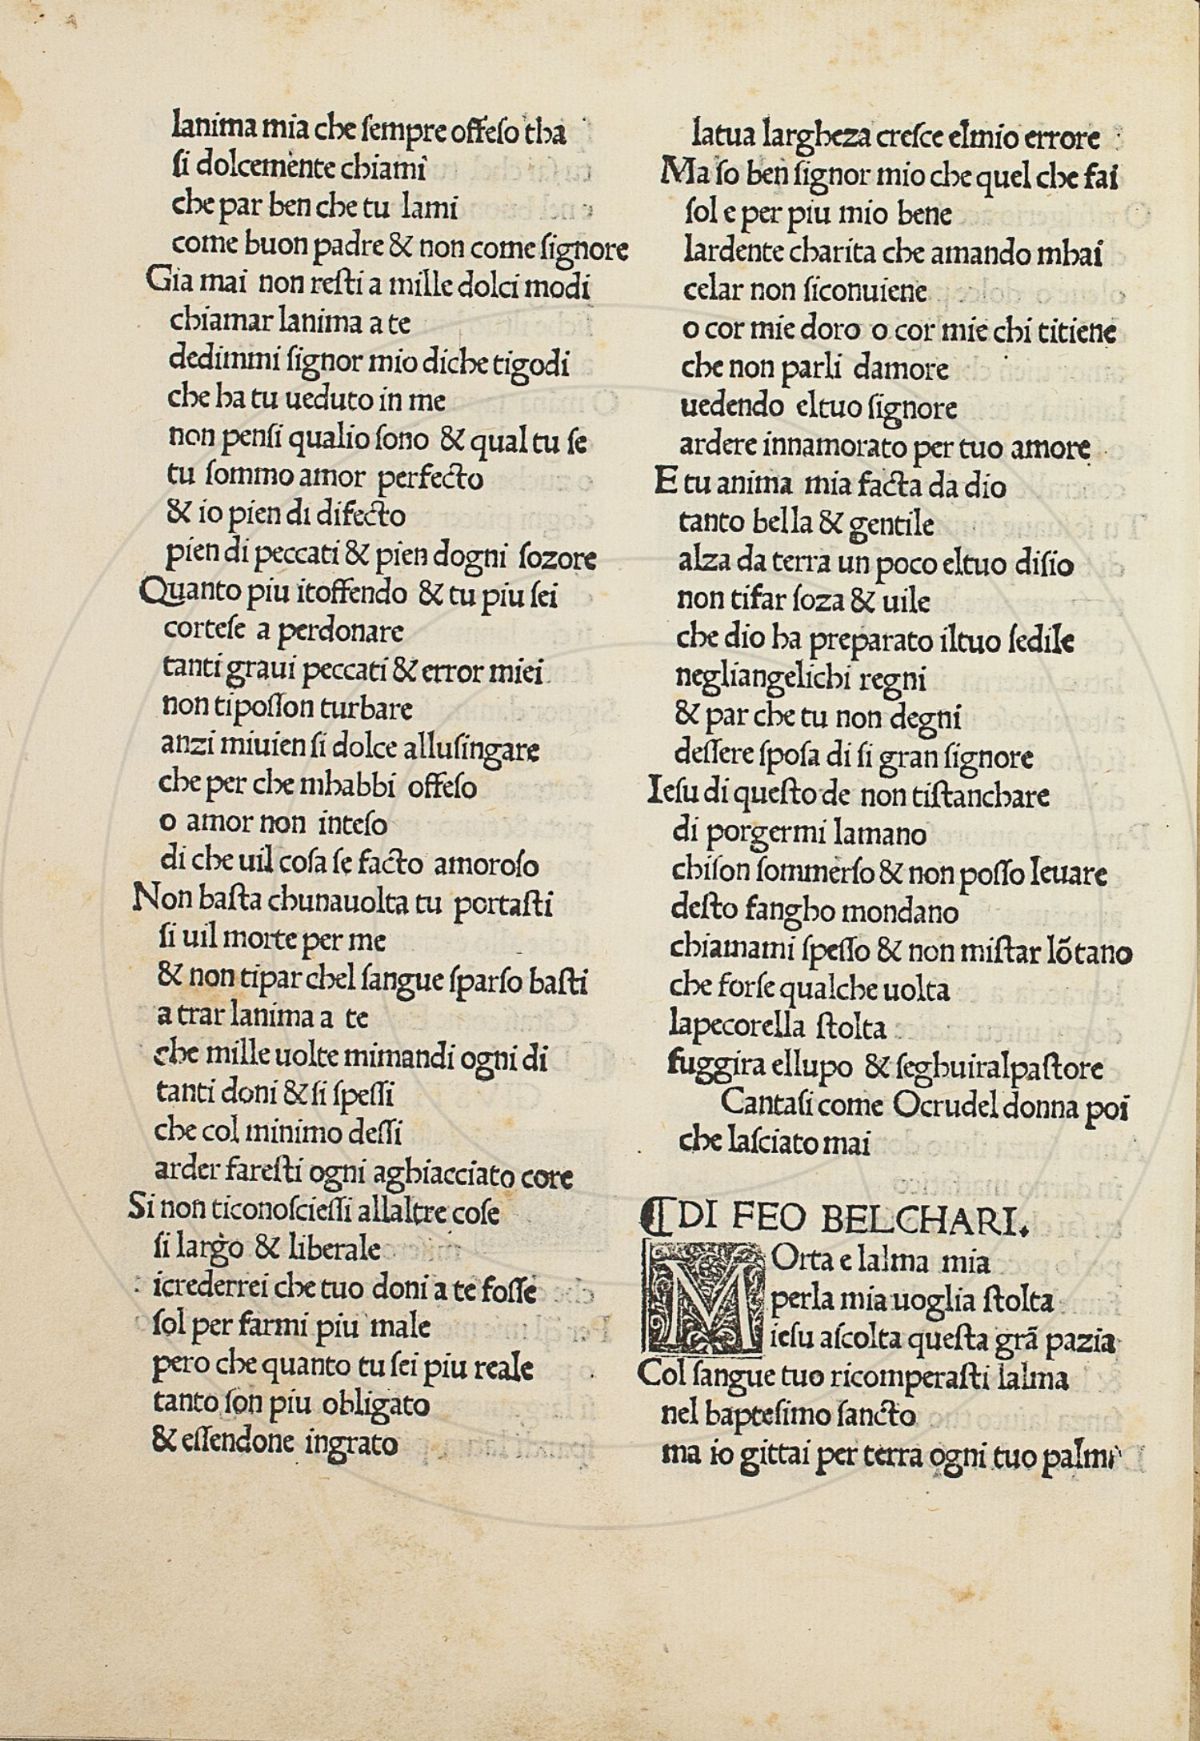 lanima mia che ſempre offeſo tha
ſi dolcemente chiami
che par ben che tu lami
come buon padre & non come ſignore
Gia mai non reſti a mille dolci modi
chiamar lanima a te
dedimmi ſignor mio diche tigodi
che ha tu ueduto in me
non penſi qualio ſono & qual tu ſe
tu ſommo amor perfecto
& io pien di difecto
pien di peccati & pien dogni ſozore
Quanto piu itoffendo & tu piu ſei
corteſe a perdonare
tanti graui peccati & error miei
non tipoſſon turbare
anzi miuien ſi dolce alluſingare
che per che mhabbi offeſo
o amor non inteſo
di che uil coſa ſe facto amoroſo
Non baſta chunauolta tu portaſti
ſi uil morte per me
& non tipar chel ſangue ſparſo baſti
a trar lanima a te
che mille uolte mimandi ogni di
tanti doni & ſi ſpeſſi
che col minimo deſſi
arder fareſti ogni aghiacciato core
Si non ticonoſcieſſi allaltre coſe
ſi largo & liberale
icrederrei che tuo doni a te foſſe
ſol per farmi piu male
pero che quanto tu ſei piu reale
tanto ſon piu obligato
& eſſendone ingrato
latua largheza creſce elmio errore
Ma ſo ben ſignor mio che quel che fai
ſol e per piu mio bene
lardente charita che amando mhai
celar non ſiconuiene
o cor mie doro o cor mie chi titiene
che non parli damore
uedendo eltuo ſignore
ardere innamorato per tuo amore
E tu anima mia facta da dio
tanto bella & gentile
alza da terra un poco eltuo diſio
non tifar ſoza & uile
che dio ha preparato iltuo ſedile
negliangelichi regni
& par che tu non degni
deſſere ſpoſa di ſi gran ſignore
Ieſu di queſto de non tiſtanchare
di porgermi lamano
chiſon ſommerſo & non poſſo leuare
deſto fangho mondano
chiamami ſpeſſo & non miſtar lõtano
che forſe qualche uolta
lapecorella ſtolta
fuggira ellupo & ſeghuiralpaſtore
Cantaſi come Ocrudel donna poi
che laſciato mai
¶ DI FEO BELCHARI.
MOrta e lalma mia
perla mia uoglia ſtolta
ieſu aſcolta queſta grã pazia
Col ſangue tuo ricomperaſti lalma
nel bapteſimo ſancto
ma io gittai per terra ogni tuo palma